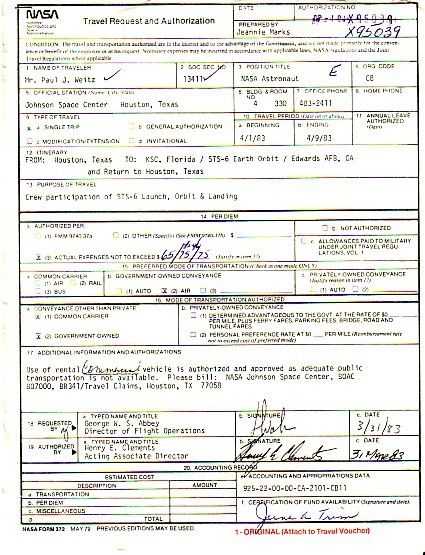 NASA
National
Aeronautics and
Space
Administration
Travel Request and Authorization
DATE
AUTHORIZATION NO
X95039
PREPARED BY
Jeannie Marks
X95039
CONDITION: The travel and transportation authorized are in the interest and to the advantage of the Government, and not made primarily for the conven-
ience or benefit of the employee or at his request. Necessary expenses may be incurred in accordance with applicable laws, NASA regulations and the Joint
Travel Regulations where applicable.
1 NAME OF TRAVELER
2 SOC SEC NO
3 POSITION TITLE
4 ORG CODE
Mr. Paul J. Weitz
13411
NASA Astronaut
E
CB
5 OFFICIAL STATION (Name, City, State)
6 BLDG & ROOM NO
7 OFFICE PHONE
8 HOME PHONE
Johnson Space Center Houston, Texas
4 330
483-2411
9 TYPE OF TRAVEL
10 TRAVEL PERIOD
11 ANNUAL LEAVE AUTHORIZED (Days)
X a SINGLE TRIP
b GENERAL AUTHORIZATION
a BEGINNING
b ENDING
c MODIFICATION/EXTENSION
d INVITATIONAL
4/1/83
4/9/83
12 ITINERARY
FROM: Houston, Texas TO: KSC, Florida / STS-6 Earth Orbit / Edwards AFB, CA
and Return to Houston, Texas
13 PURPOSE OF TRAVEL
Crew participation of STS-6 Launch, Orbit & Landing
14. PER DIEM
a. AUTHORIZED PER:
b. NOT AUTHORIZED
(1) FMM 9740.37a
(2) OTHER (Specify)
c. ALLOWANCES PAID TO MILITARY
UNDER JOINT TRAVEL REGU
LATIONS, VOL. 1
X (3) ACTUAL EXPENSES NOT TO EXCEED $ 65/75/75 (Justify in item 17)
15. PREFERRED MODE OF TRANSPORTATION (Check as one mode ONLY)
a COMMON CARRIER
b. GOVERNMENT-OWNED CONVEYANCE
c. PRIVATELY OWNED CONVEYANCE
(Justify reason in item 17)
(1) AIR (2) RAIL
(3) BUS
(1) AUTO X (2) AIR (3)
(1) AUTO (2)
16. MODE OF TRANSPORTATION AUTHORIZED
a. CONVEYANCE OTHER THAN PRIVATE
b. PRIVATELY OWNED CONVEYANCE
X (1) COMMON CARRIER
(1) DETERMINED ADVANTAGEOUS TO THE GOVT. AT THE RATE OF $0
PER MILE, PLUS FERRY FARES, PARKING FEES, BRIDGE, ROAD AND
TUNNEL FARES
X (2) GOVERNMENT OWNED
(2) PERSONAL PREFERENCE RATE AT $0 PER MILE (Reimbursement rate
not to exceed cost of preferred mode)
17. ADDITIONAL INFORMATION AND AUTHORIZATIONS
Use of rental Commercial vehicle is authorized and approved as adequate public
transportation is not available. Please bill: NASA Johnson Space Center, SOAC
807000, BR341/Travel Claims, Houston, TX 77058
18 REQUESTED BY
a TYPED NAME AND TITLE
George W. S. Abbey
Director of Flight Operations
b. SIGNATURE
c. DATE
3/31/83
19. AUTHORIZED BY
a TYPED NAME AND TITLE
Henry E. Clements
Acting Associate Director
b. SIGNATURE
Henry E. Clements
c. DATE
31 Mar 83
20. ACCOUNTING RECORD
ESTIMATED COST
ACCOUNTING AND APPROPRIATIONS DATA
DESCRIPTION
AMOUNT
925-22-00-00-CA-2101-CB11
a TRANSPORTATION
b. PER DIEM
f. CERTIFICATION OF FUND AVAILABILITY (Signature and date)
c. MISCELLANEOUS
D TOTAL
NASA FORM 372 MAY 79 PREVIOUS EDITIONS MAY BE USED
1 - ORIGINAL (Attach to Travel Voucher)